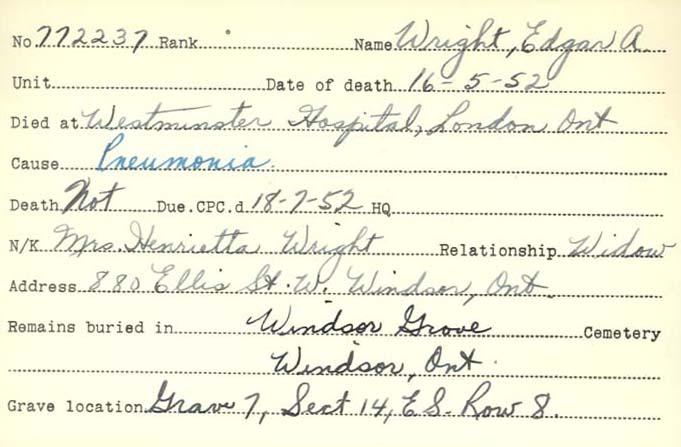 No. 772237 Rank Name Wright, Edgar A.
Unit Date of death 16-5-52
Died at Westminster Hospital, London Ont
Cause Pneumonia.
Death Not Due. CPC.d 18-7-52 HQ
N/K Mrs. Henrietta Wright Relationship Widow
Address 880 Ellis St. W. Windsor, Ont.
Remains buried in Windsor Grove Cemetery
Windsor, Ont.
Grave location Grave 7, Sect 14, E S. Row 8.